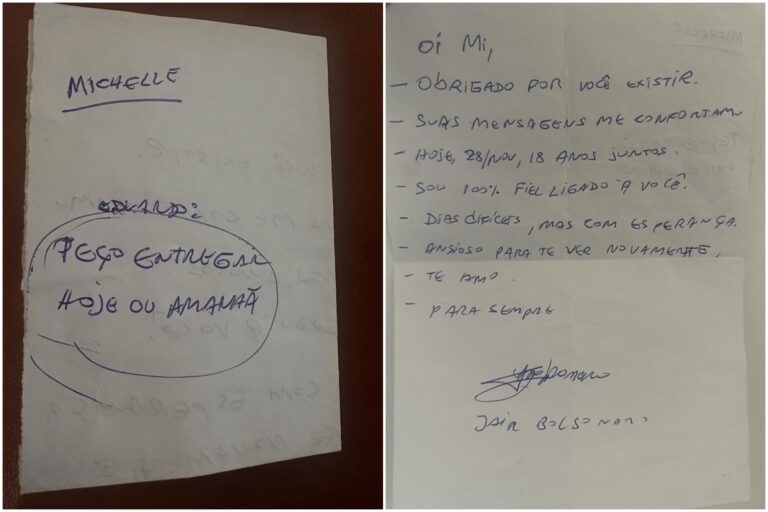 MICHELLE
EDUARDO:
PEÇO ENTREGAR
HOJE OU AMANHÃ
Oi Mi,
- OBRIGADO POR VOCÊ EXISTIR.
- SUAS MENSAGENS ME CONFORTAM.
- HOJE, 28/NOV, 18 ANOS JUNTOS.
- SOU 100% FIEL LIGADO À VOCÊ.
- DIAS DIFÍCEIS, MAS COM ESPERANÇA.
- ANSIOSO PARA TE VER NOVAMENTE,
- TE AMO.
- PARA SEMPRE
JAIR BOLSONARO